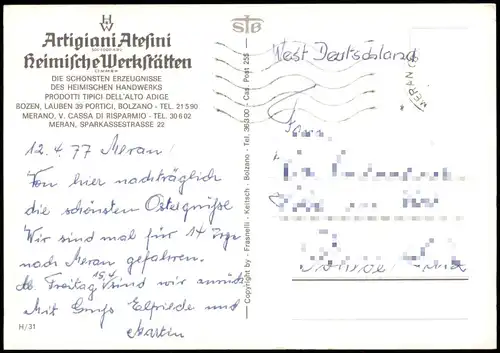 HW
Artigiani Atesini
Heimische Werkstätten
DIE SCHÖNSTEN ERZEUGNISSE
DES HEIMISCHEN HANDWERKS
PRODOTTI TIPICI DELL'ALTO ADIGE
BOZEN, LAUBEN 39 PORTICI, BOLZANO - TEL. 21 5 90
MERANO, V. CASSA DI RISPARMIO - TEL. 30 6 02
MERAN, SPARKASSESTRASSE 22
12.4.77 Meran!
Von hier nachträglich
die schönsten Ostergrüße
Wir sind mal für 14 Tage
nach Meran gefahren.
Ab Freitag 15.4. sind wir zurück
Mit Gruß Elfriede und
Martin
H/31
Copyright by - Frasnelli - Keitsch - Bolzano - Tel. 36 3 00 - Cas. Post 255
STB
West Deutschland
MERAN